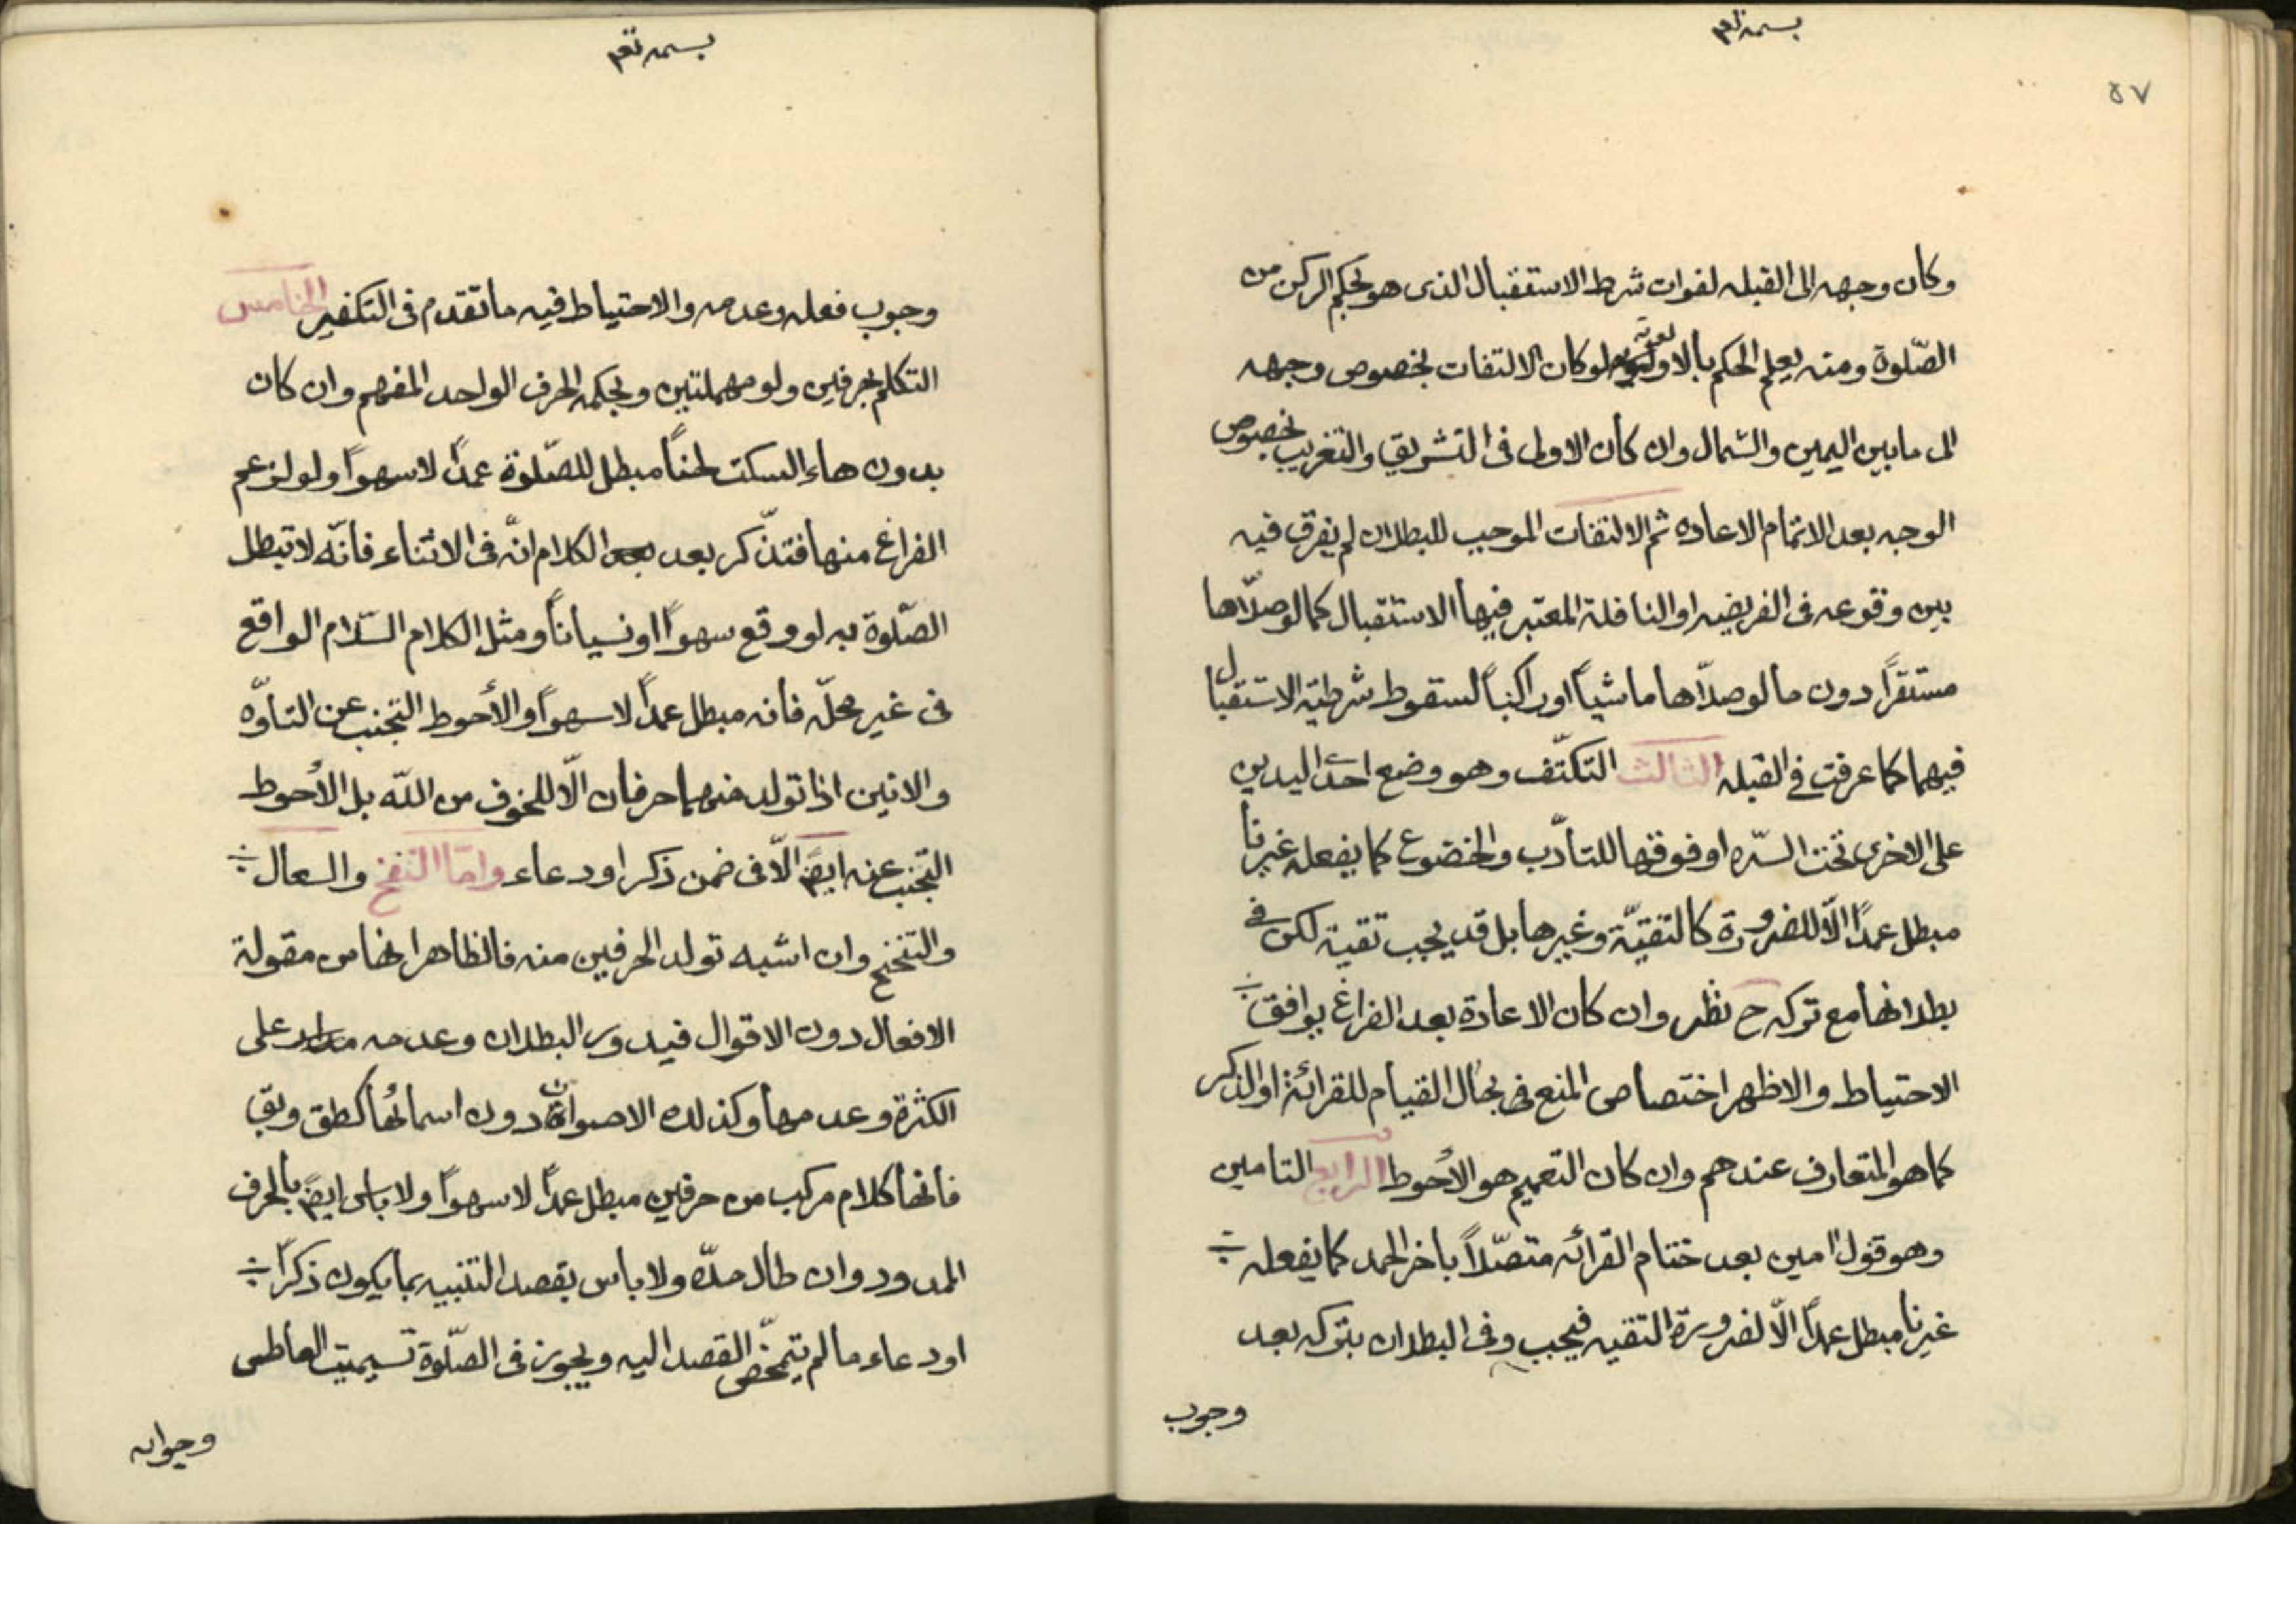 بسمه تعم
٥٧
وكان وجهه الى القبله لفوات شرط الاستقبال الذى هو بحكم الركن من
الصّلوة ومنه يعلم الحكم بالاولوية لو كان الالتفات بخصوص وجهه
الى ما بين اليمين والشمال وان كان الاولى فى التشريق والتغريب بخصوص
الوجه بعد الاتمام الاعاده ثم الالتفات الموجب للبطلان لم يفرق فيه
بين وقوعه فى الفريضه او النافلة المعتبر فيها الاستقبال كما لو صلّاها
مستقرًا دون ما لو صلّاها ماشيًا او راكبًا لسقوط شرطيّة الاستقبال
فيهما كما عرفت في القبله الثالث التكتّف وهو وضع احدى اليدين
على الاخرى تحت السرّه او فوقها للتادّب والخضوع كما يفعله غيرنا
مبطل عمدًا الّا للضرورة كالتقيّة وغيرها بل قد يجب تقية لكن في
بطلانها مع تركه ح نظر وان كان الاعادة بعد الفراغ يوافق
الاحتياط والاظهر اختصاص المنع فى بحال القيام للقرائة او الذكر
كما هو المتعارف عندهم وان كان التعميم هو الأحوط الرابع التامين
وهو قول امين بعد ختام القرائه متصّلاً باخر الحمد كما يفعله
غيرنا مبطل عمدًا الّا لضرورة التقيه فيجب وفى البطلان بتركه بعد
وجوب
بسمه تعم
وجوب فعله وعدمه والاحتياط فيه ما تقدم فى التكفير الخامس
التكلم بحرفين ولو مهملتين وبحكمه الحرف الواحد المفهم وان كان
بدون هاء السكت لحنًا مبطل للصّلوة عمدًا لا سهوًا ولو لزعم
الفراغ منها فتذّكر بعد الكلام انّه فى الاثناء فانّه لا تبطل
الصّلوة به لو وقع سهوًا او نسيانًا ومثل الكلام السّلام الواقع
فى غير محلّه فانه مبطل عمدًا لا سهوًا والأحوط التجنب عن التاوّه
والانين اذا تولد منهما حرفان الّا للخوف من اللّه بل الأحوط
التجنب عنه ايضً الّا فى ضمن ذكر او دعاء وامّا النفخ والسعال
والتنحنح وان اشبه تولد الحرفين منه فالظاهر انها من مقولة
الافعال دون الاقوال فيدور البطلان وعدمه مدار على
الكثرة وعدمها وكذلك الاصوات دون اسمائها كطق وبق
فانها كلام مركب من حرفين مبطل عمدًا لا سهوًا ولا باس ايضً بالحرف
الممدود وان طال مدّه ولا باس بقصد التنبيه بما يكون ذكرًا
او دعاء ما لم يتمحّض القصد اليه ويجوز فى الصّلوة تسيميت العاطس
وجوابه